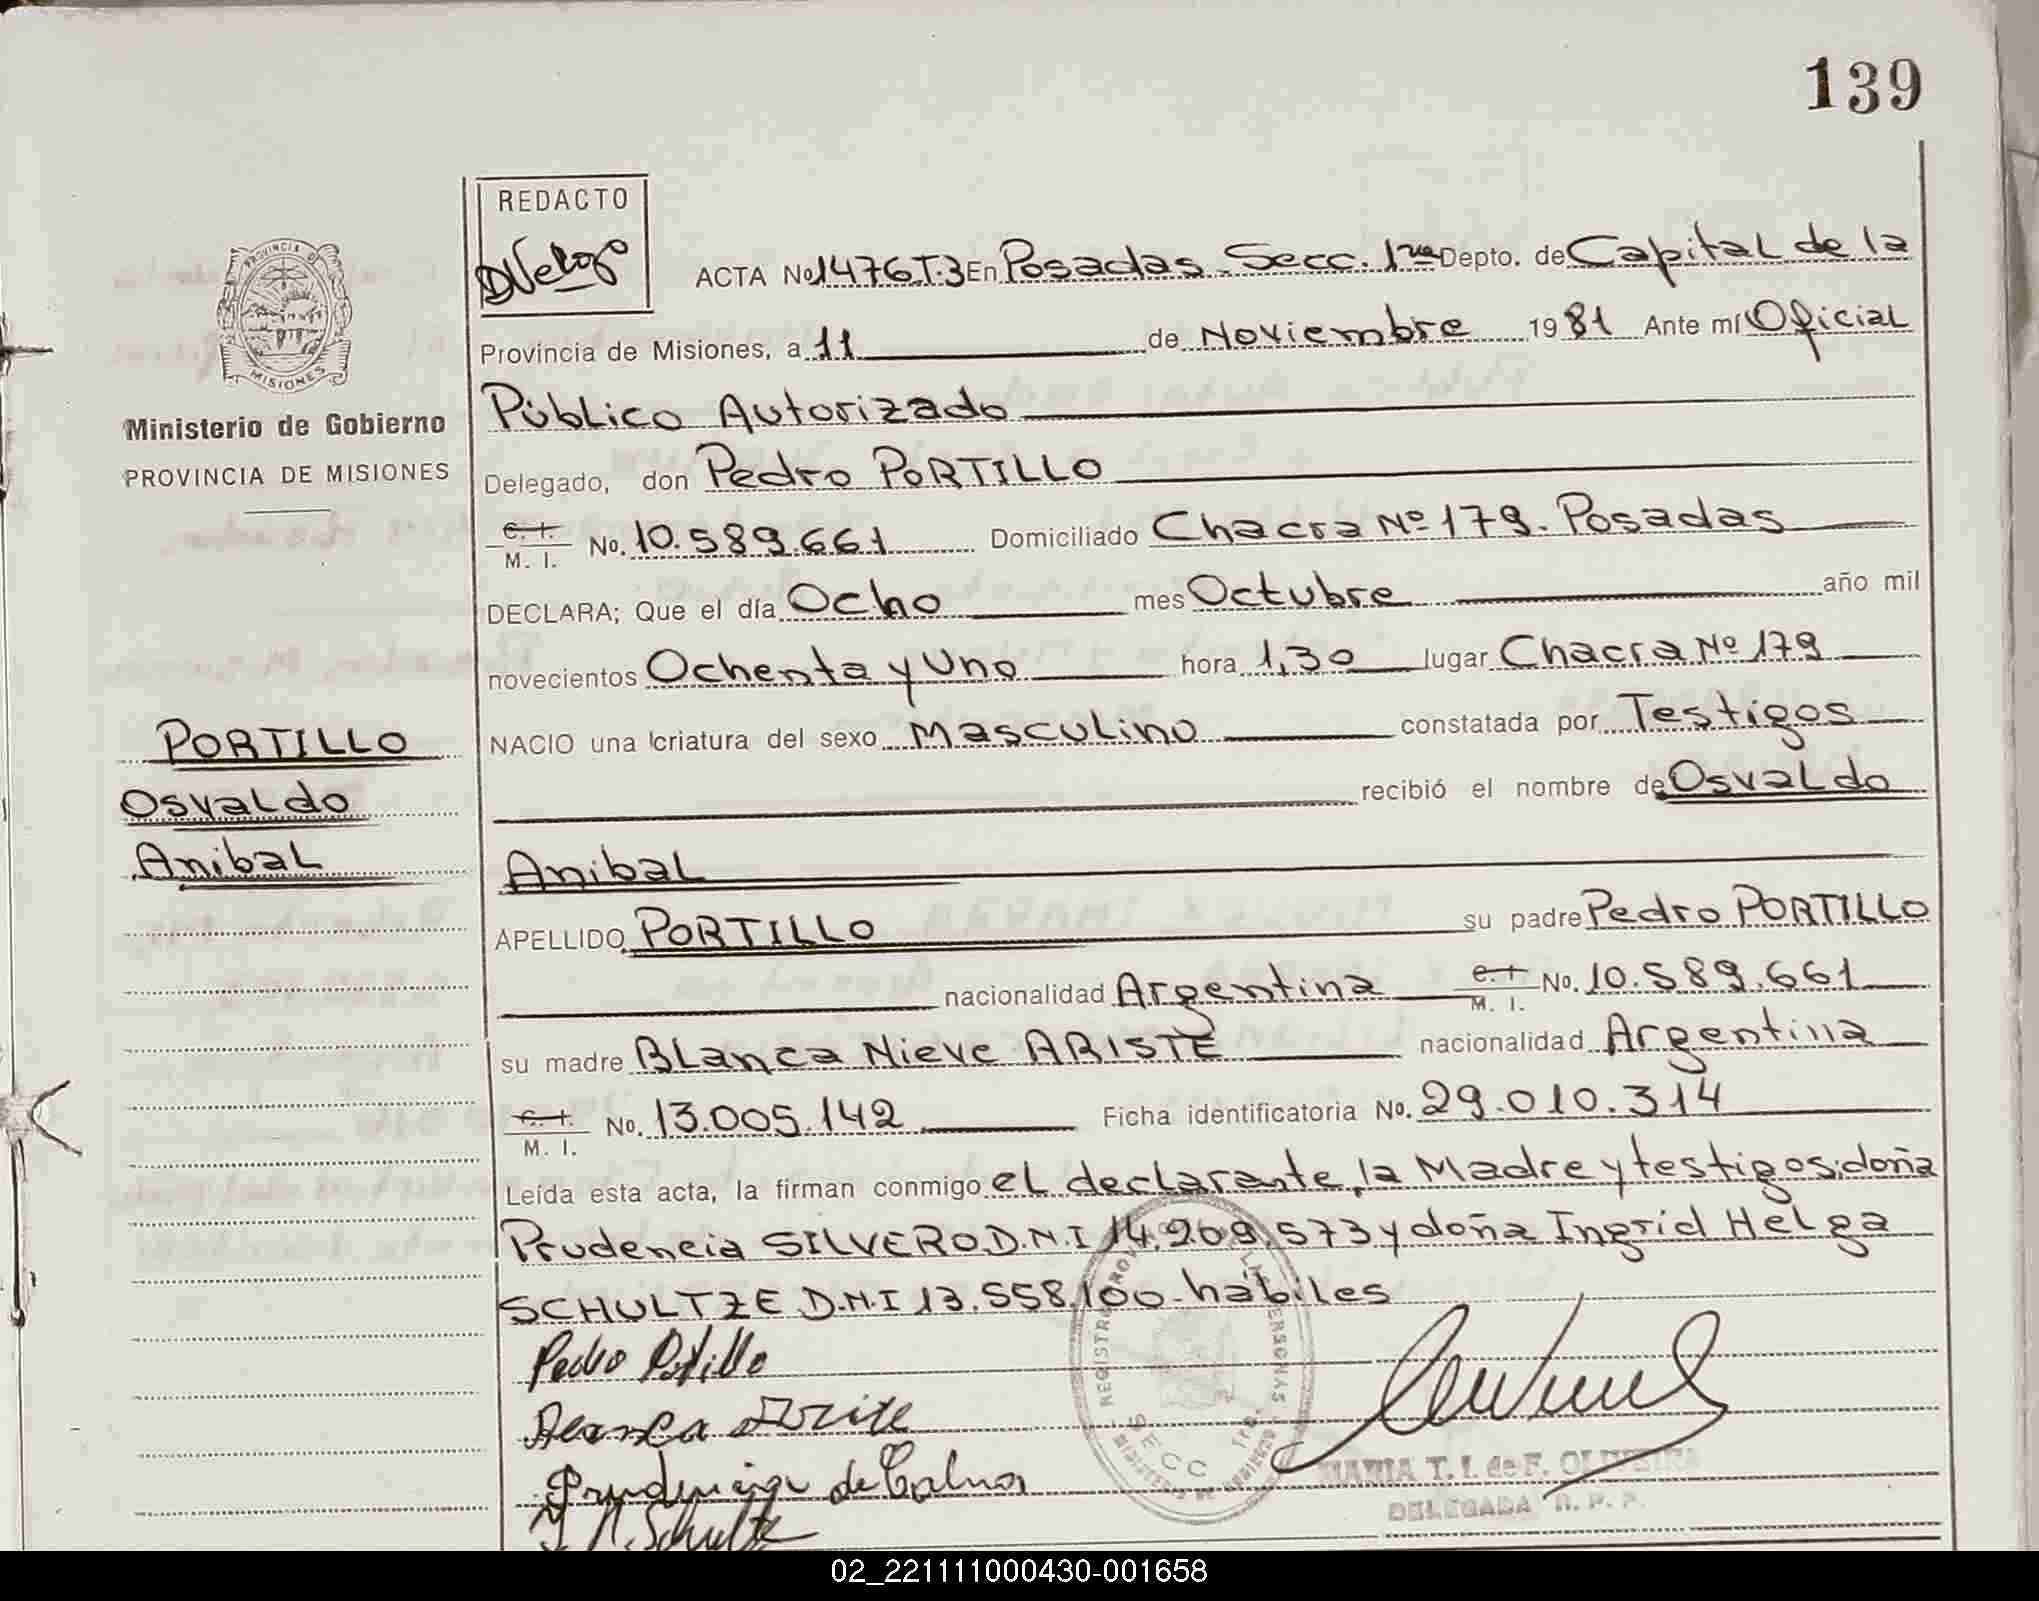 139
REDACTO
PROVINCIA DE
MISIONES
Ministerio de Gobierno
PROVINCIA DE MISIONES
PORTILLO
Osvaldo
Anibal
ACTA No 1476 T.3 En Posadas. Secc. 1ra Depto. de Capital de la
Provincia de Misiones, a 11 de Noviembre 1981 Ante mí Oficial
Público Autorizado
Delegado, don Pedro PORTILLO
C. I. / M. I. No. 10.589.661 Domiciliado Chacra Nº 179. Posadas
DECLARA; Que el día Ocho mes Octubre año mil
novecientos Ochenta y Uno hora 1,30 lugar Chacra Nº 179
NACIO una criatura del sexo Masculino constatada por Testigos
recibió el nombre de Osvaldo
Anibal
APELLIDO PORTILLO su padre Pedro PORTILLO
nacionalidad Argentina C. I. / M. I. No. 10.589.661
su madre Blanca Nieve ARISTE nacionalidad Argentina
C. I. / M. I. No. 13.005.142 Ficha identificatoria No. 29.010.314
Leída esta acta, la firman conmigo el declarante, la Madre y testigos: doña
Prudencia SILVERO D.N.I 14.209.573 y doña Ingrid Helga
SCHULTZE D.N.I 13.558.100 - hábiles
Pedro Portillo
Prudencia de
SECC 1ra.
MARIA T. I. de F. OLIVEIRA
DELEGADA R. P. P.
02_221111000430-001658